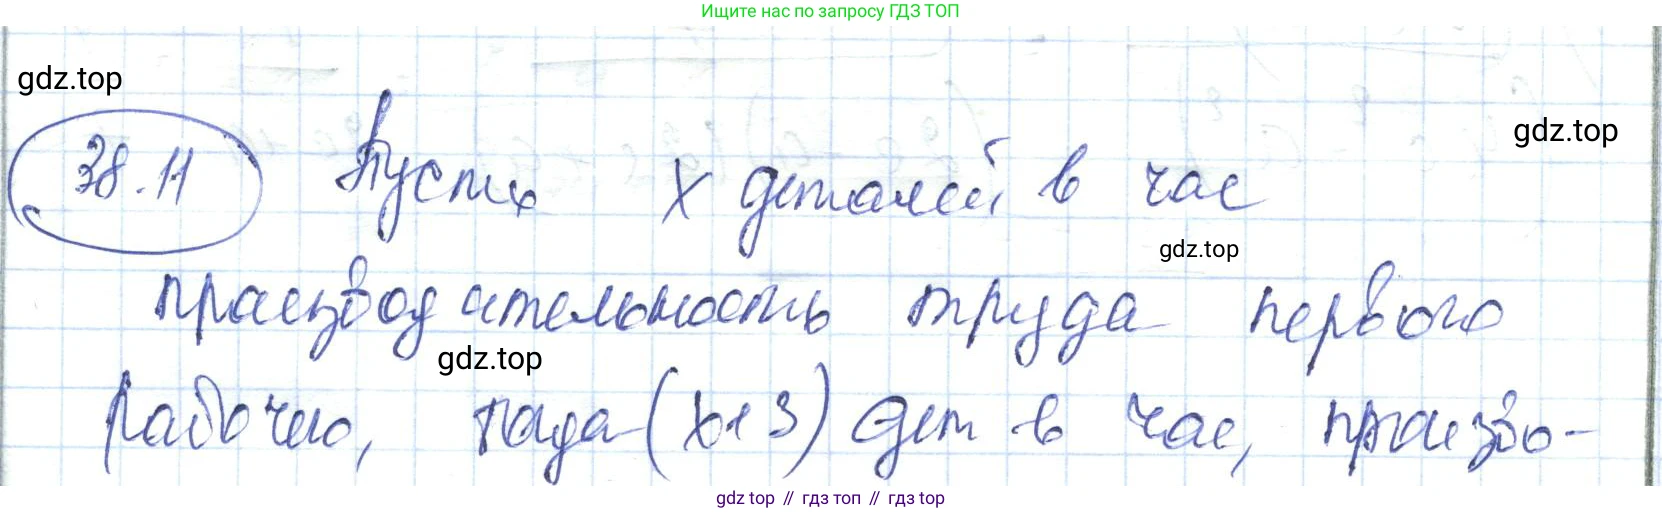 Ищите нас по запросу ГДЗ ТОП
gdz.top
38.11 Пусть x деталей в час
gdz.top
gdz.top
производительность труда первого
gdz.top
рабочего, тогда (x+3) дет в час, произво-
gdz top // гдз топ // gdz top